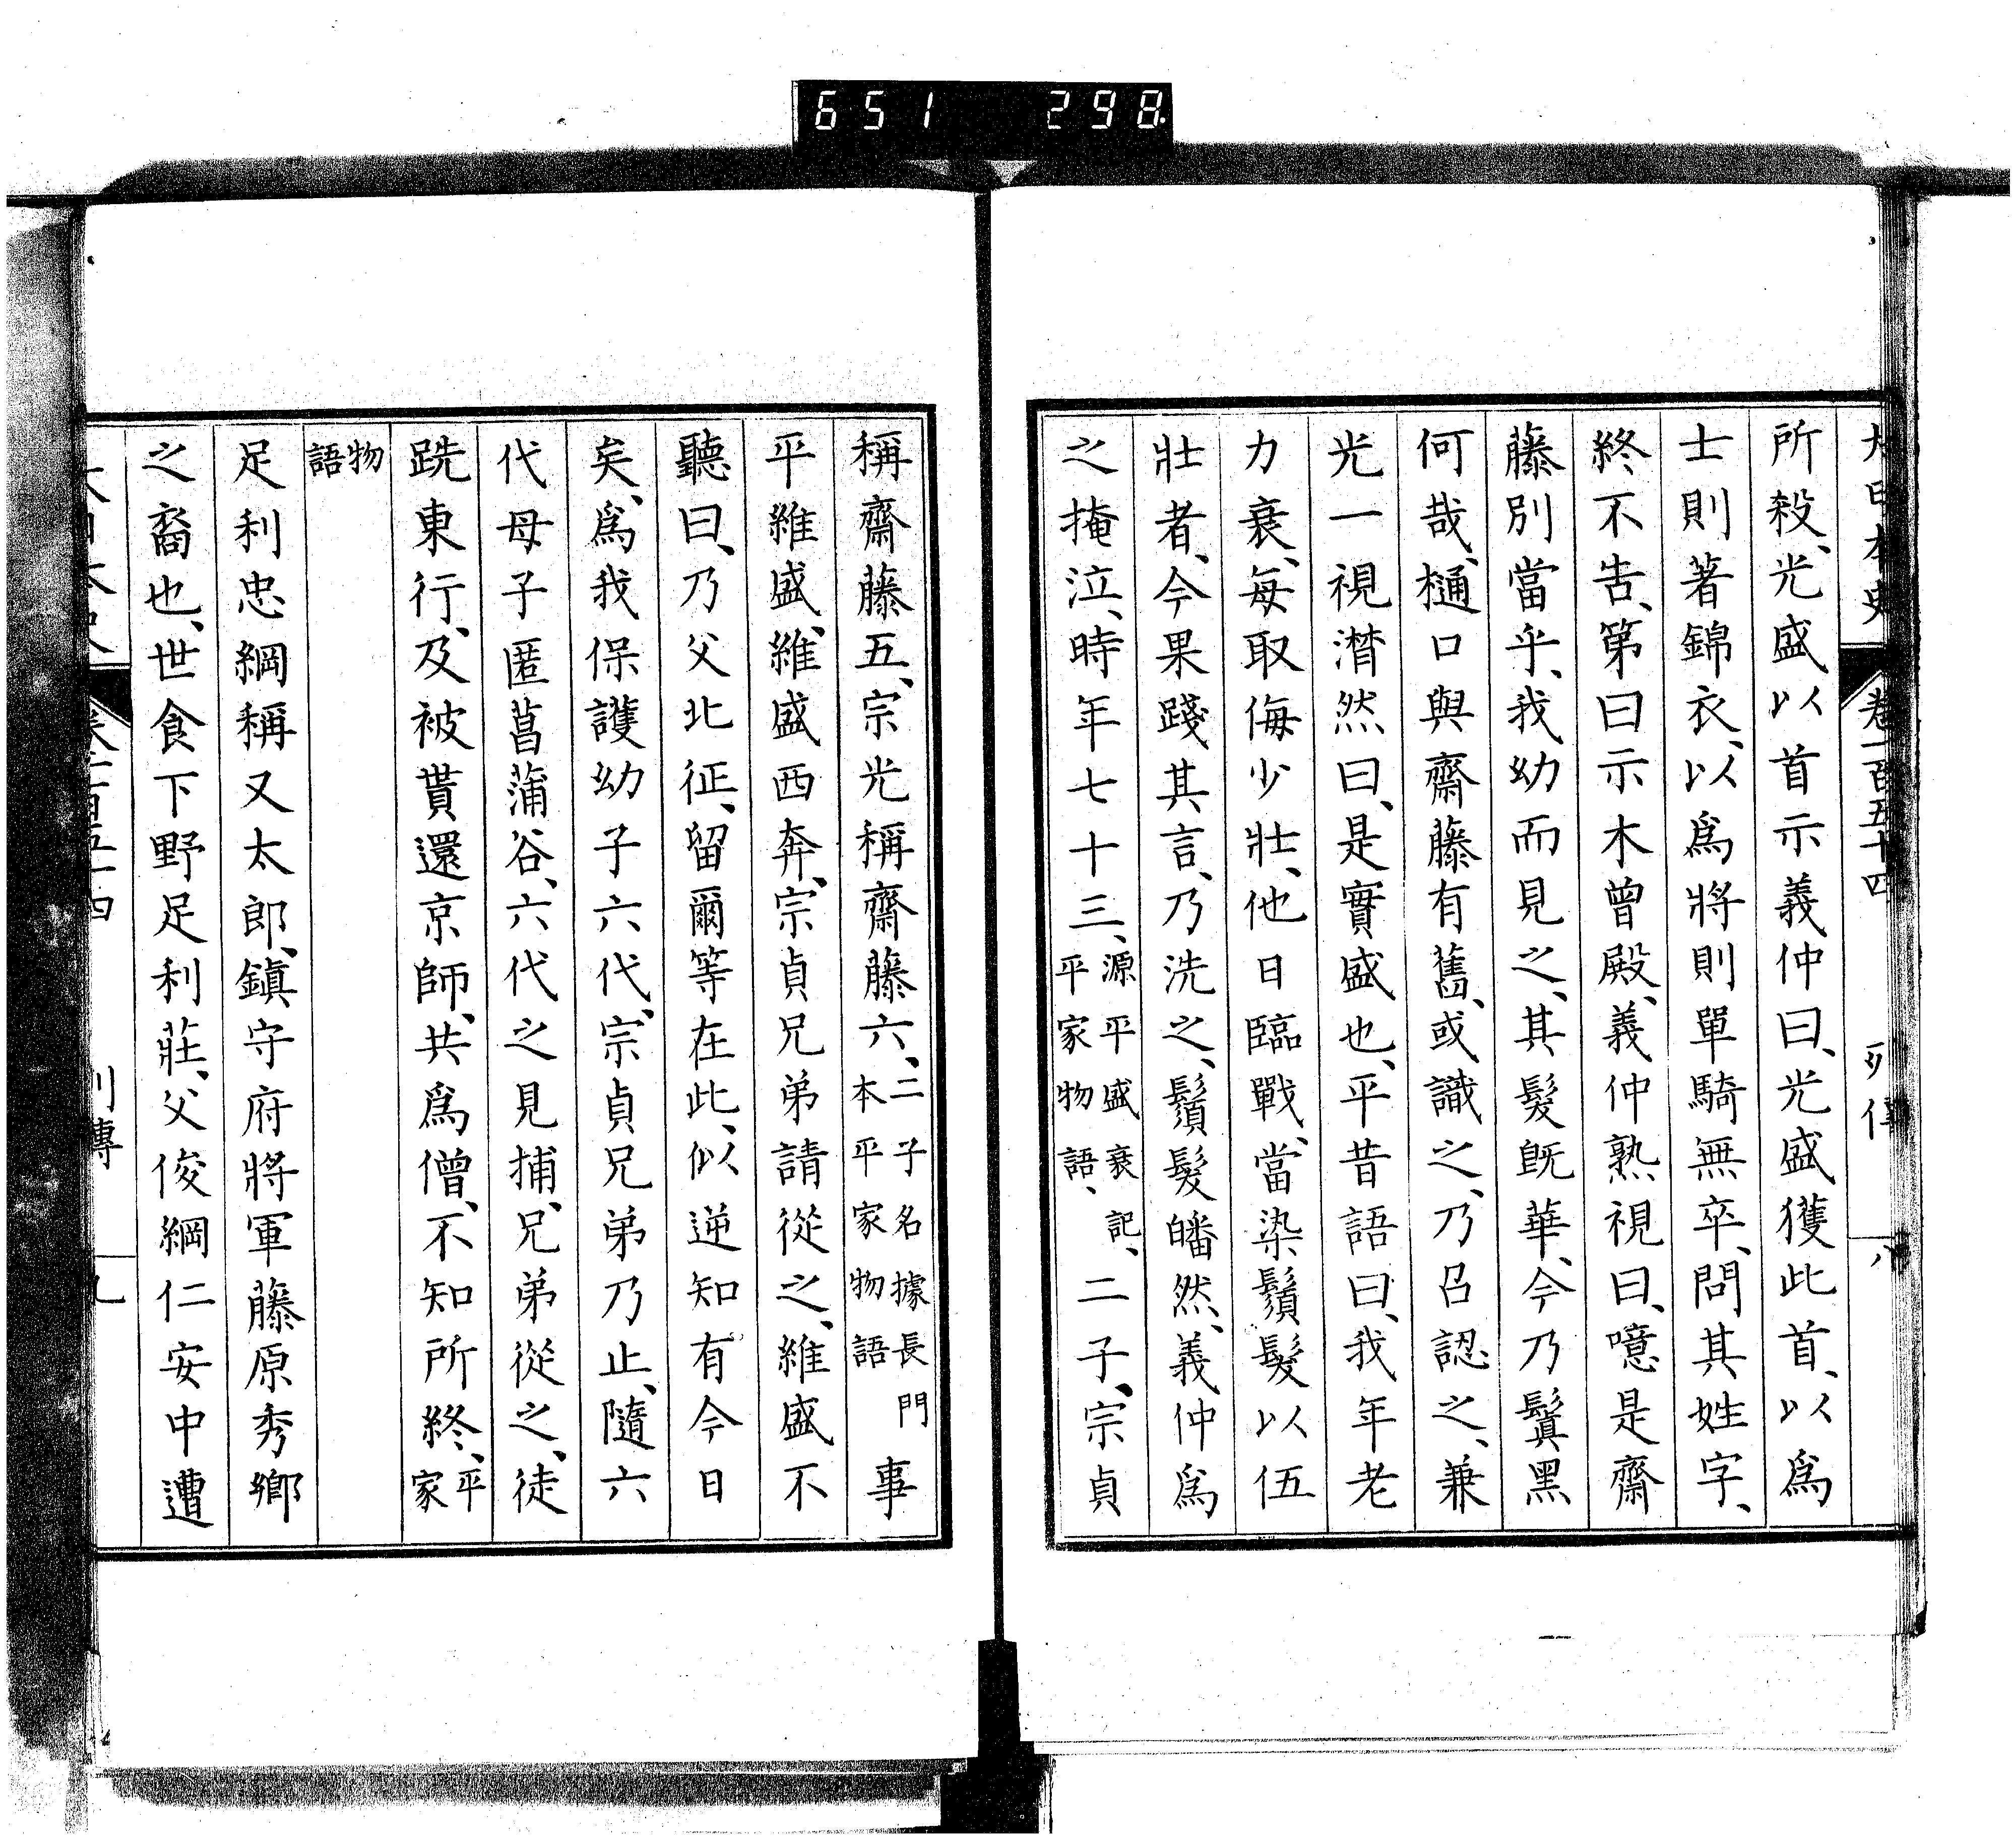 651 298
大日本史 卷一百五十四 列傳 八
所殺、光盛以首示義仲曰、光盛獲此首、以爲
士則著錦衣、以爲將則單騎無卒、問其姓字、
終不告、第曰示木曾殿、義仲熟視曰、噫是齋
藤別當乎、我幼而見之、其髮旣華、今乃鬒黑
何哉、樋口與齋藤有舊、或識之、乃召認之、兼
光一視潸然曰、是實盛也、平昔語曰、我年老
力衰、每取侮少壯、他日臨戰、當染鬚髮以伍
壯者、今果踐其言、乃洗之、鬚髮皤然、義仲爲
之掩泣、時年七十三、源平盛衰記、平家物語、二子、宗貞
稱齋藤五、宗光稱齋藤六、二子名據長門本平家物語事
平維盛、維盛西奔、宗貞兄弟請從之、維盛不
聽曰、乃父北征、留爾等在此、似逆知有今日
矣、爲我保護幼子六代、宗貞兄弟乃止、隨六
代母子匿菖蒲谷、六代之見捕、兄弟從之、徒
跣東行、及被貰還京師、共爲僧、不知所終、平家
物語
足利忠綱稱又太郎、鎭守府將軍藤原秀鄉
之裔也、世食下野足利莊、父俊綱仁安中遭
大日本史 卷一百五十四 列傳 九